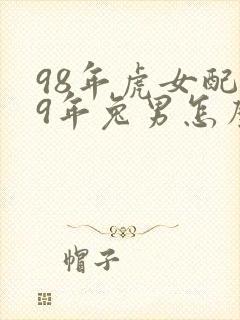 98年虎女配
9年兔男怎
帽子